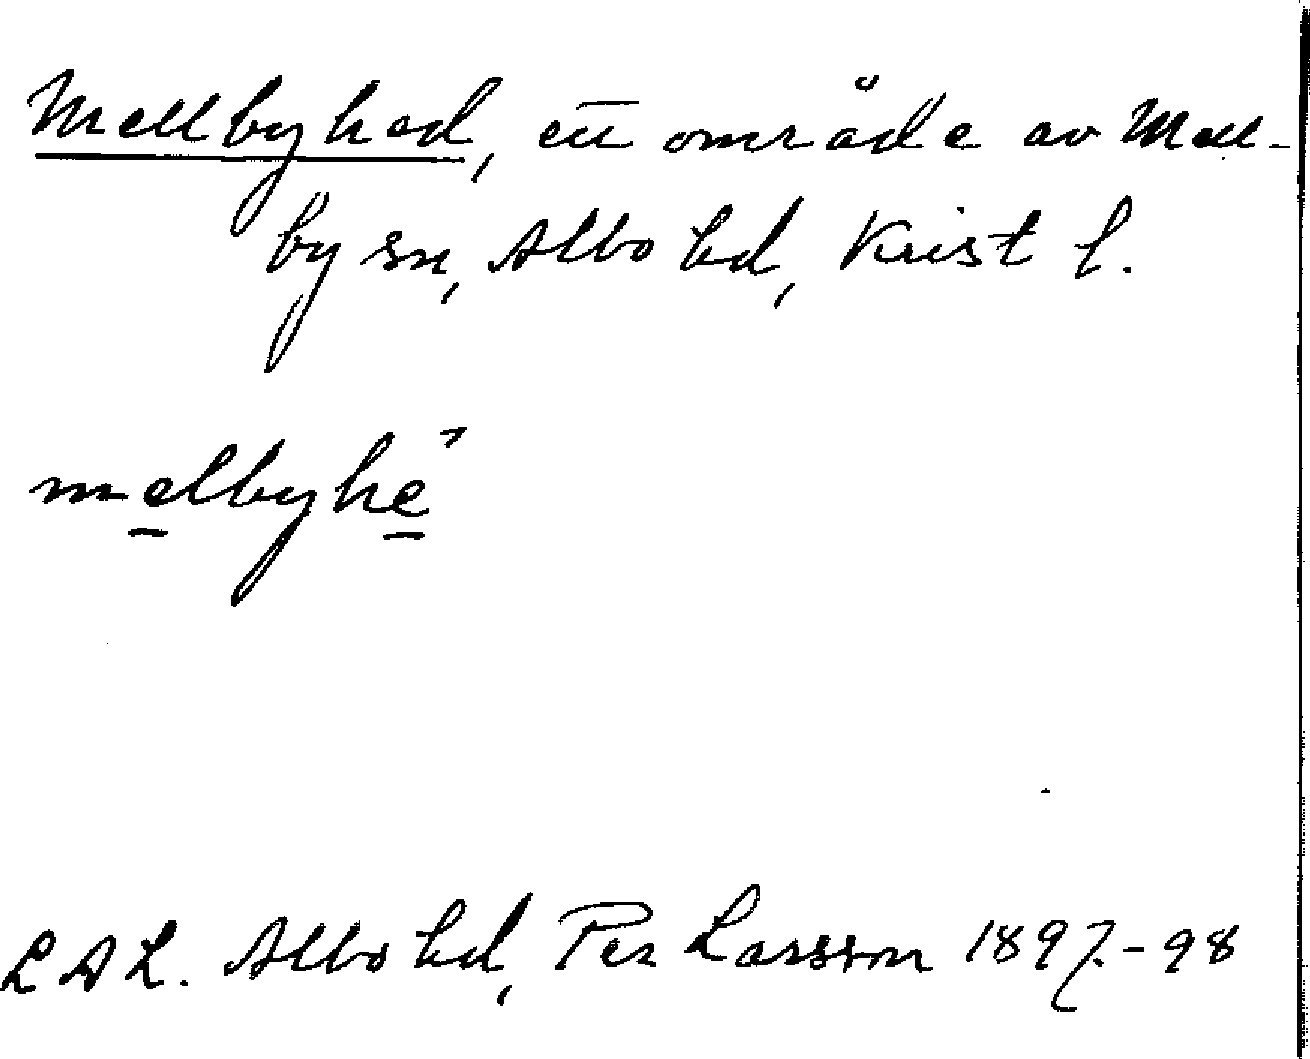 Mellbyhed, ett område av Mell-
by sn, Albo hd, Krist l.
melbyhe
LAL. Albo hd, Per Larsson 1897-98